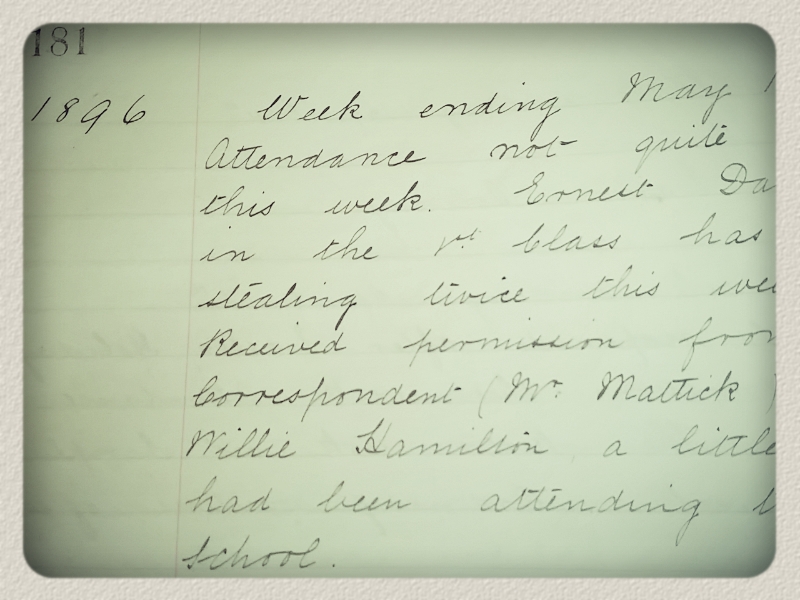 181
1896 Week ending May 1
Attendance not quite
this week. Ernest Da
in the Vth Class has
stealing twice this wee
Received permission from
Correspondent (Mr. Mattick)
Willie Hamilton a little
had been attending
School.